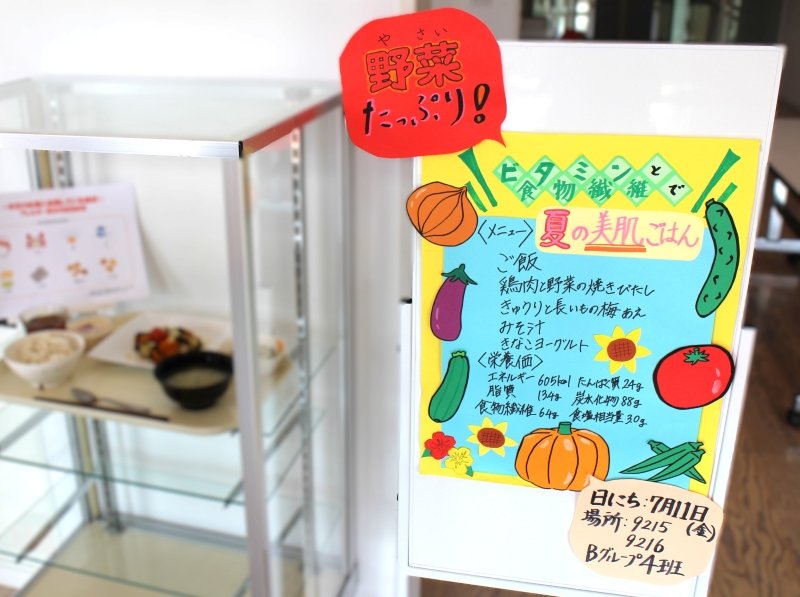 やさい
野菜
たっぷり!
ビタミンと
食物繊維で
夏の美肌ごはん
〈メニュー〉
ご飯
鶏肉と野菜の焼きびたし
きゅうりと長いもの梅あえ
みそ汁
きなこヨーグルト
〈栄養価〉
エネルギー 605kcal たんぱく質 24g
脂質 13.4g 炭水化物 88g
食物繊維 6.4g 食塩相当量 3.0g
日にち:7月11日
(金)
場所:9215
9216
Bグループ4班